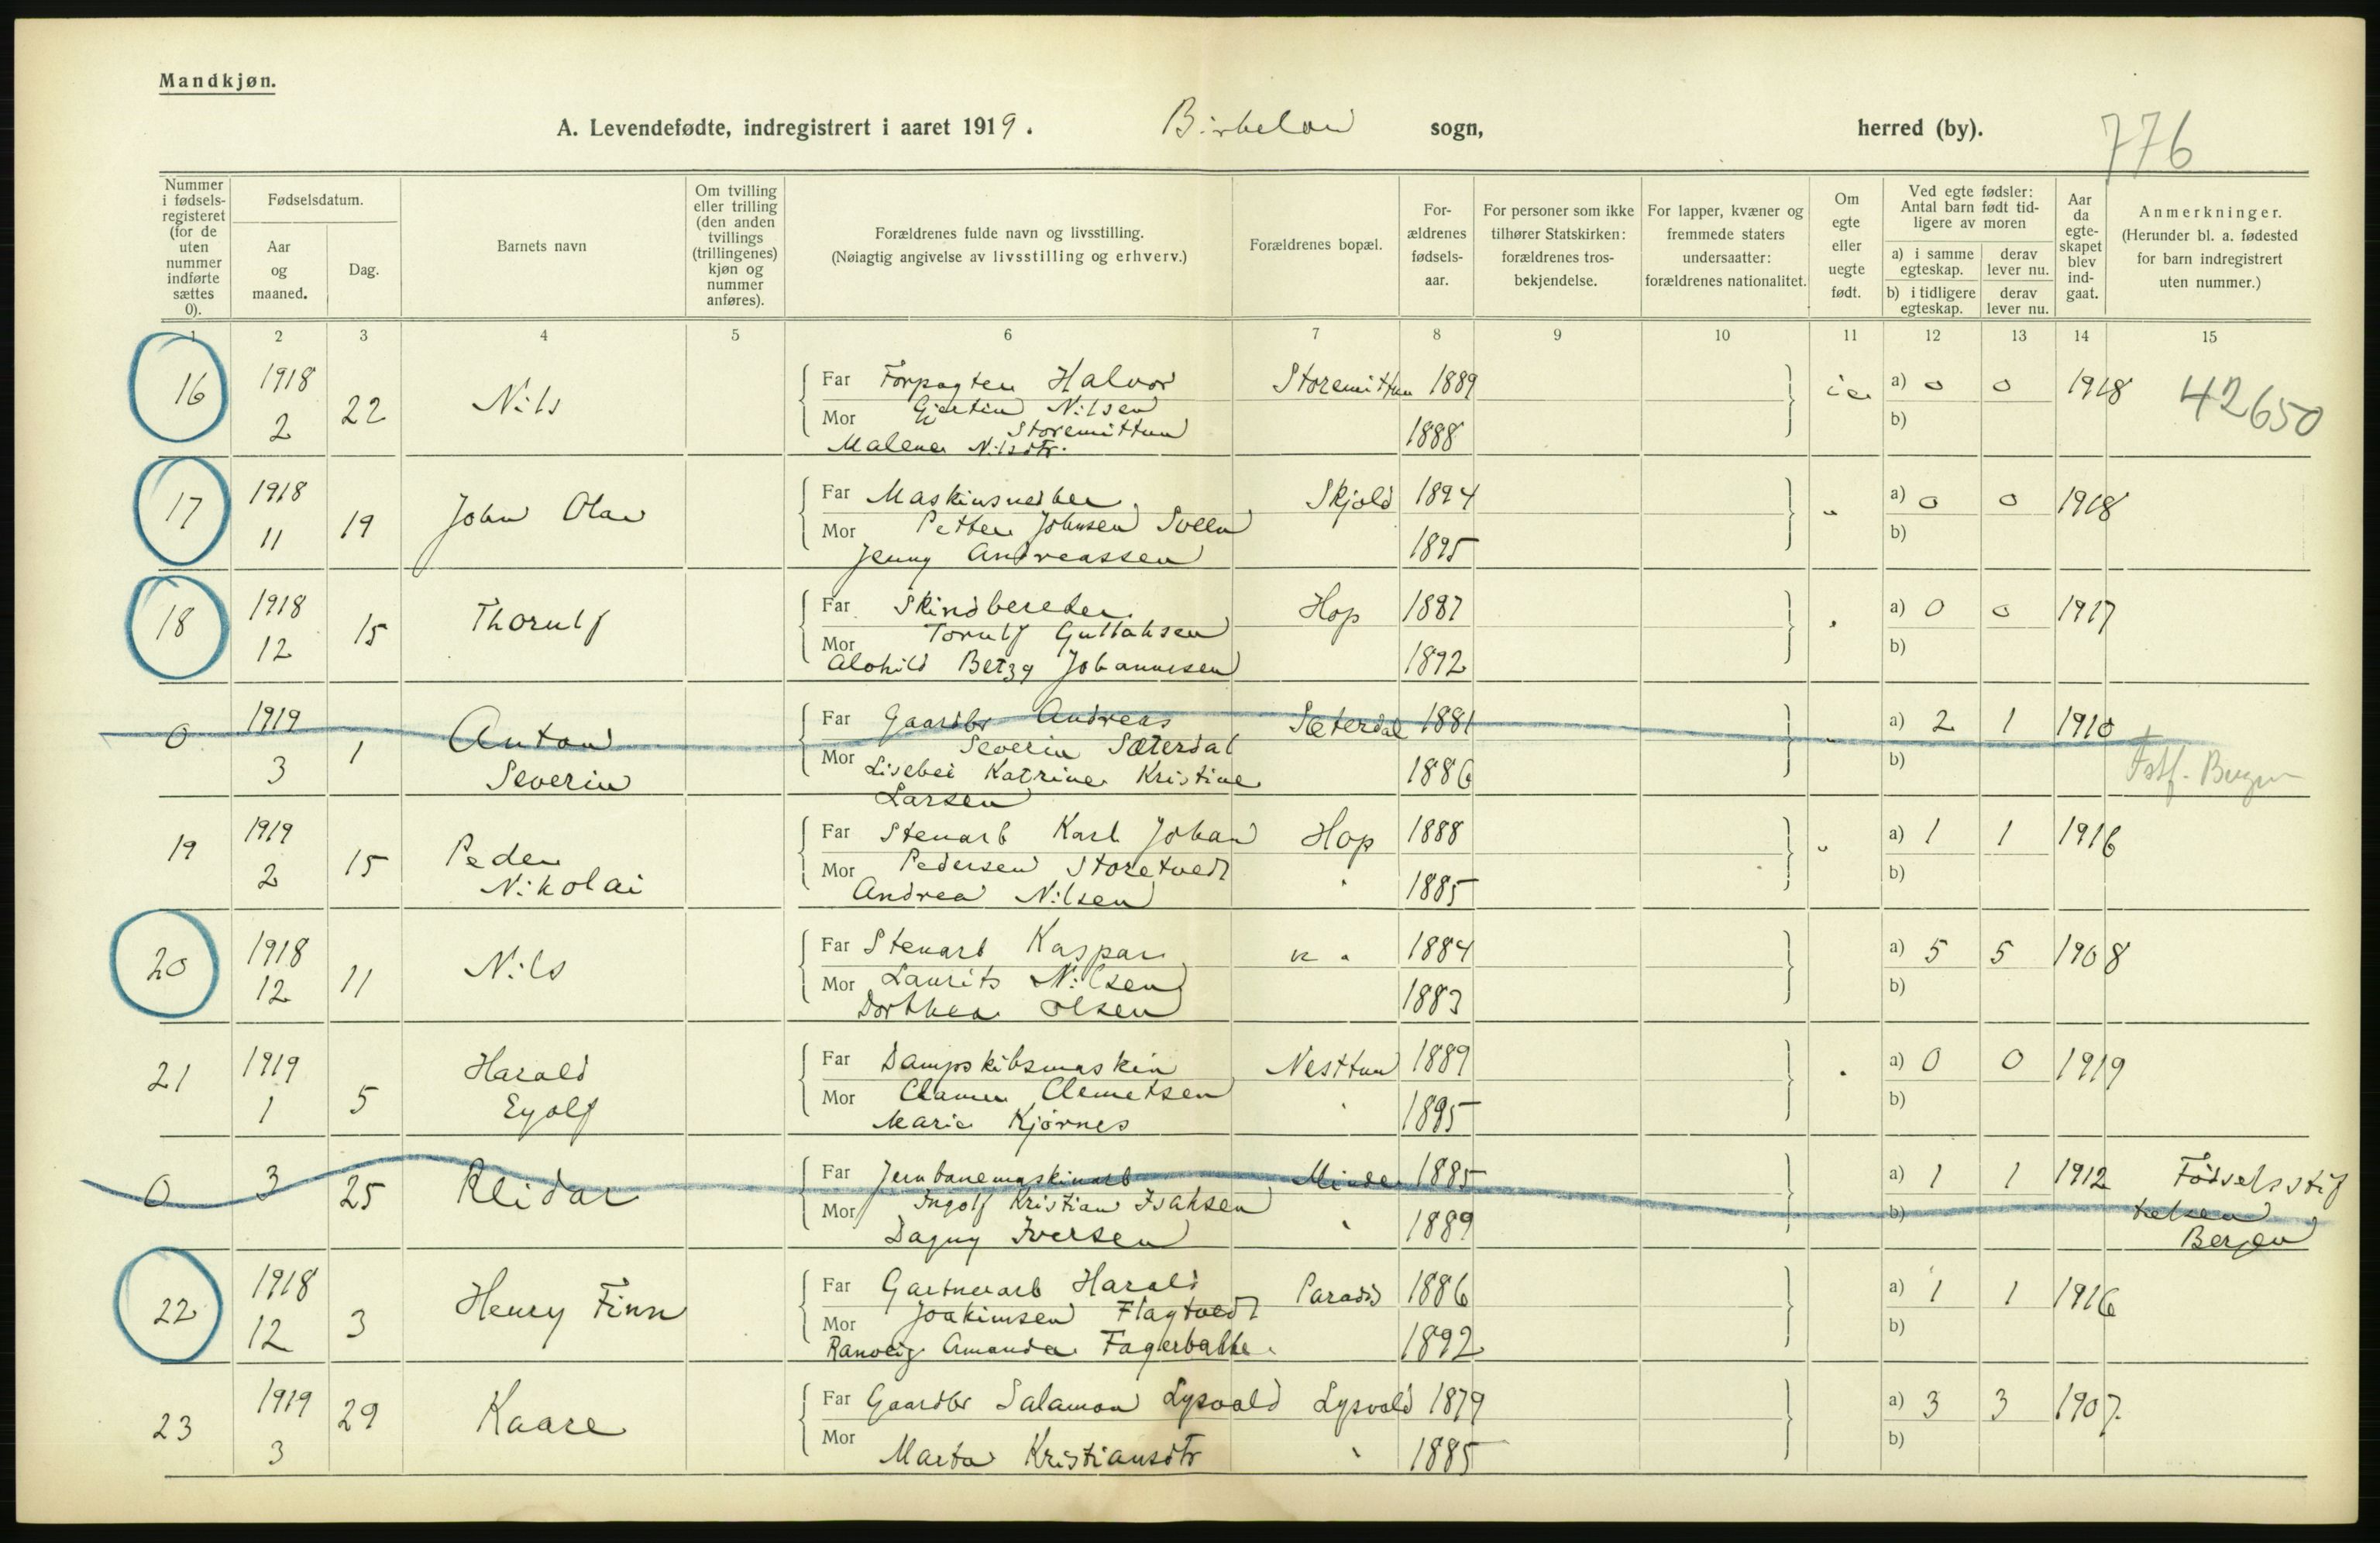 Mandkjøn.
A. Levendefødte, indregistrert i aaret 1919. Birkeland sogn, herred (by). 776
Nummer i fødsels-registeret (for de uten nummer indførte sættes 0).
Fødselsdatum.
Aar og maaned.
Dag.
Barnets navn
Om tvilling eller trilling (den anden tvillings (trillingenes) kjøn og nummer anføres).
Forældrenes fulde navn og livsstilling.
(Nøiagtig angivelse av livsstilling og erhverv.)
Forældrenes bopæl.
For-ældrenes fødsels-aar.
For personer som ikke tilhører Statskirken: forældrenes tros-bekjendelse.
For lapper, kvæner og fremmede staters undersaatter: forældrenes nationalitet.
Om egte eller uegte født.
Ved egte fødsler: Antal barn født tid-ligere av moren
a) i samme egteskap.
derav lever nu.
b) i tidligere egteskap.
derav lever nu.
Aar da egte-skapet blev ind-gaat.
Anmerkninger.
(Herunder bl. a. fødested for barn indregistrert uten nummer.)
1 2 3 4 5 6 7 8 9 10 11 12 13 14 15
16 1918 2 22 Nils
Far Forpagter Halvor Storemittun 1889 a) 0 0 1918 42650
Gjertin Nilsen
Mor Storemittun 1888 b)
Malene Nilsdtr.
17 1918 11 19 John Olav
Far Maskinsnedker Skjold 1894 " a) 0 0 1918
Mor Petter Johnsen Sveen 1895 b)
Jenny Andreassen
18 1918 12 15 Thorulf
Far Skindbereder Hop 1887 a) 0 0 1917
Mor Torulf Gullaksen 1892 b)
Alohild Betzy Johannesen
0 1919 3 1 Anton Severin
Far Gaardbr Andreas Sæterdal 1881 " a) 2 1 1910
Severin Sæterdal
Mor Lisebei Katrine Kristine 1886 b) Fstf. Bergen
Larsen
19 1919 2 15 Peder Nikolai
Far Stenarb Karl Johan Hop 1888 " a) 1 1 1916
Mor Pedersen Storetvedt 1885 b)
Andrea Nilsen
20 1918 12 11 Nils
Far Stenarb Kaspar 1884 a) 5 5 1908
Mor Laurits Nilsen 1883 b)
Dorthea Olsen
21 1919 1 5 Harald Eyolf
Far Dampskibsmaskin Nesttun 1889 a) 0 0 1919
Mor Clemetsen 1895 b)
Marie Kjørnes
0 3 25 Reidar
Far Jernbanemaskinarb Minde 1885 a) 1 1 1912 Fødselsstif
Mor Ingolf Kristian Isaksen 1889 b) telsen
Dagny Iversen Bergen
22 1918 12 3 Henry Finn
Far Gartnerarb Harald Paradis 1886 a) 1 1 1916
Mor Joakimsen Flagtvedt 1892 b)
Ranveig Amanda Fagerbakke
23 1919 3 29 Kaare
Far Gaardbr Salamon Lysvold Lysvold 1879 a) 3 3 1907
Mor Marta Kristiansdtr 1885 b)